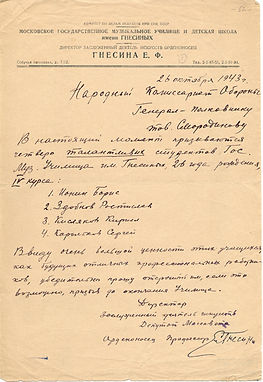 КОМИТЕТ ПО ДЕЛАМ ИСКУССТВ ПРИ СНК СССР
МОСКОВСКОЕ ГОСУДАРСТВЕННОЕ МУЗЫКАЛЬНОЕ УЧИЛИЩЕ И ДЕТСКАЯ ШКОЛА
имени ГНЕСИНЫХ
ДИРЕКТОР ЗАСЛУЖЕННЫЙ ДЕЯТЕЛЬ ИСКУССТВ ОРДЕНОНОСЕЦ
ГНЕСИНА Е. Ф.
26 октября 1943 г.
Народный Комиссариат Обороны
Генерал-полковнику
тов. Смородинову
В настоящий момент призываются
четверо талантливых студентов Гос
Муз. Училища им. Гнесиных, 26 года рождения,
IV курса:
1. Ионин Борис
2. Здобнов Ростислав
3. Кисляков Кирилл
4. Карпыков Сергей
В виду очень большой ценности этих учащихся
как будущих отличных профессиональных работни-
ков, убедительно прошу отсрочить им, если это
возможно, призыв до окончания Училища.
Директор
Заслуженный деятель искусств
Депутат Моссовета
Орденоносец Профессор Гнесина